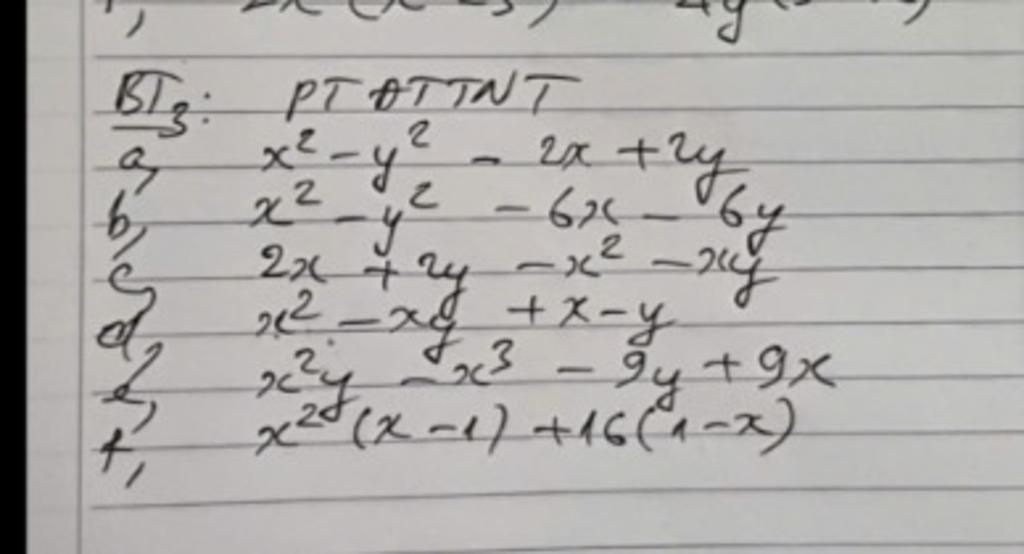 BT3: PT ĐTTNT
a, x² - y² - 2x + 2y
b, x² - y² - 6x - 6y
c, 2x + 2y - x² - xy
d, x² - xy + x - y
e, x²y - x³ - 9y + 9x
f, x² (x - 1) + 16(1 - x)